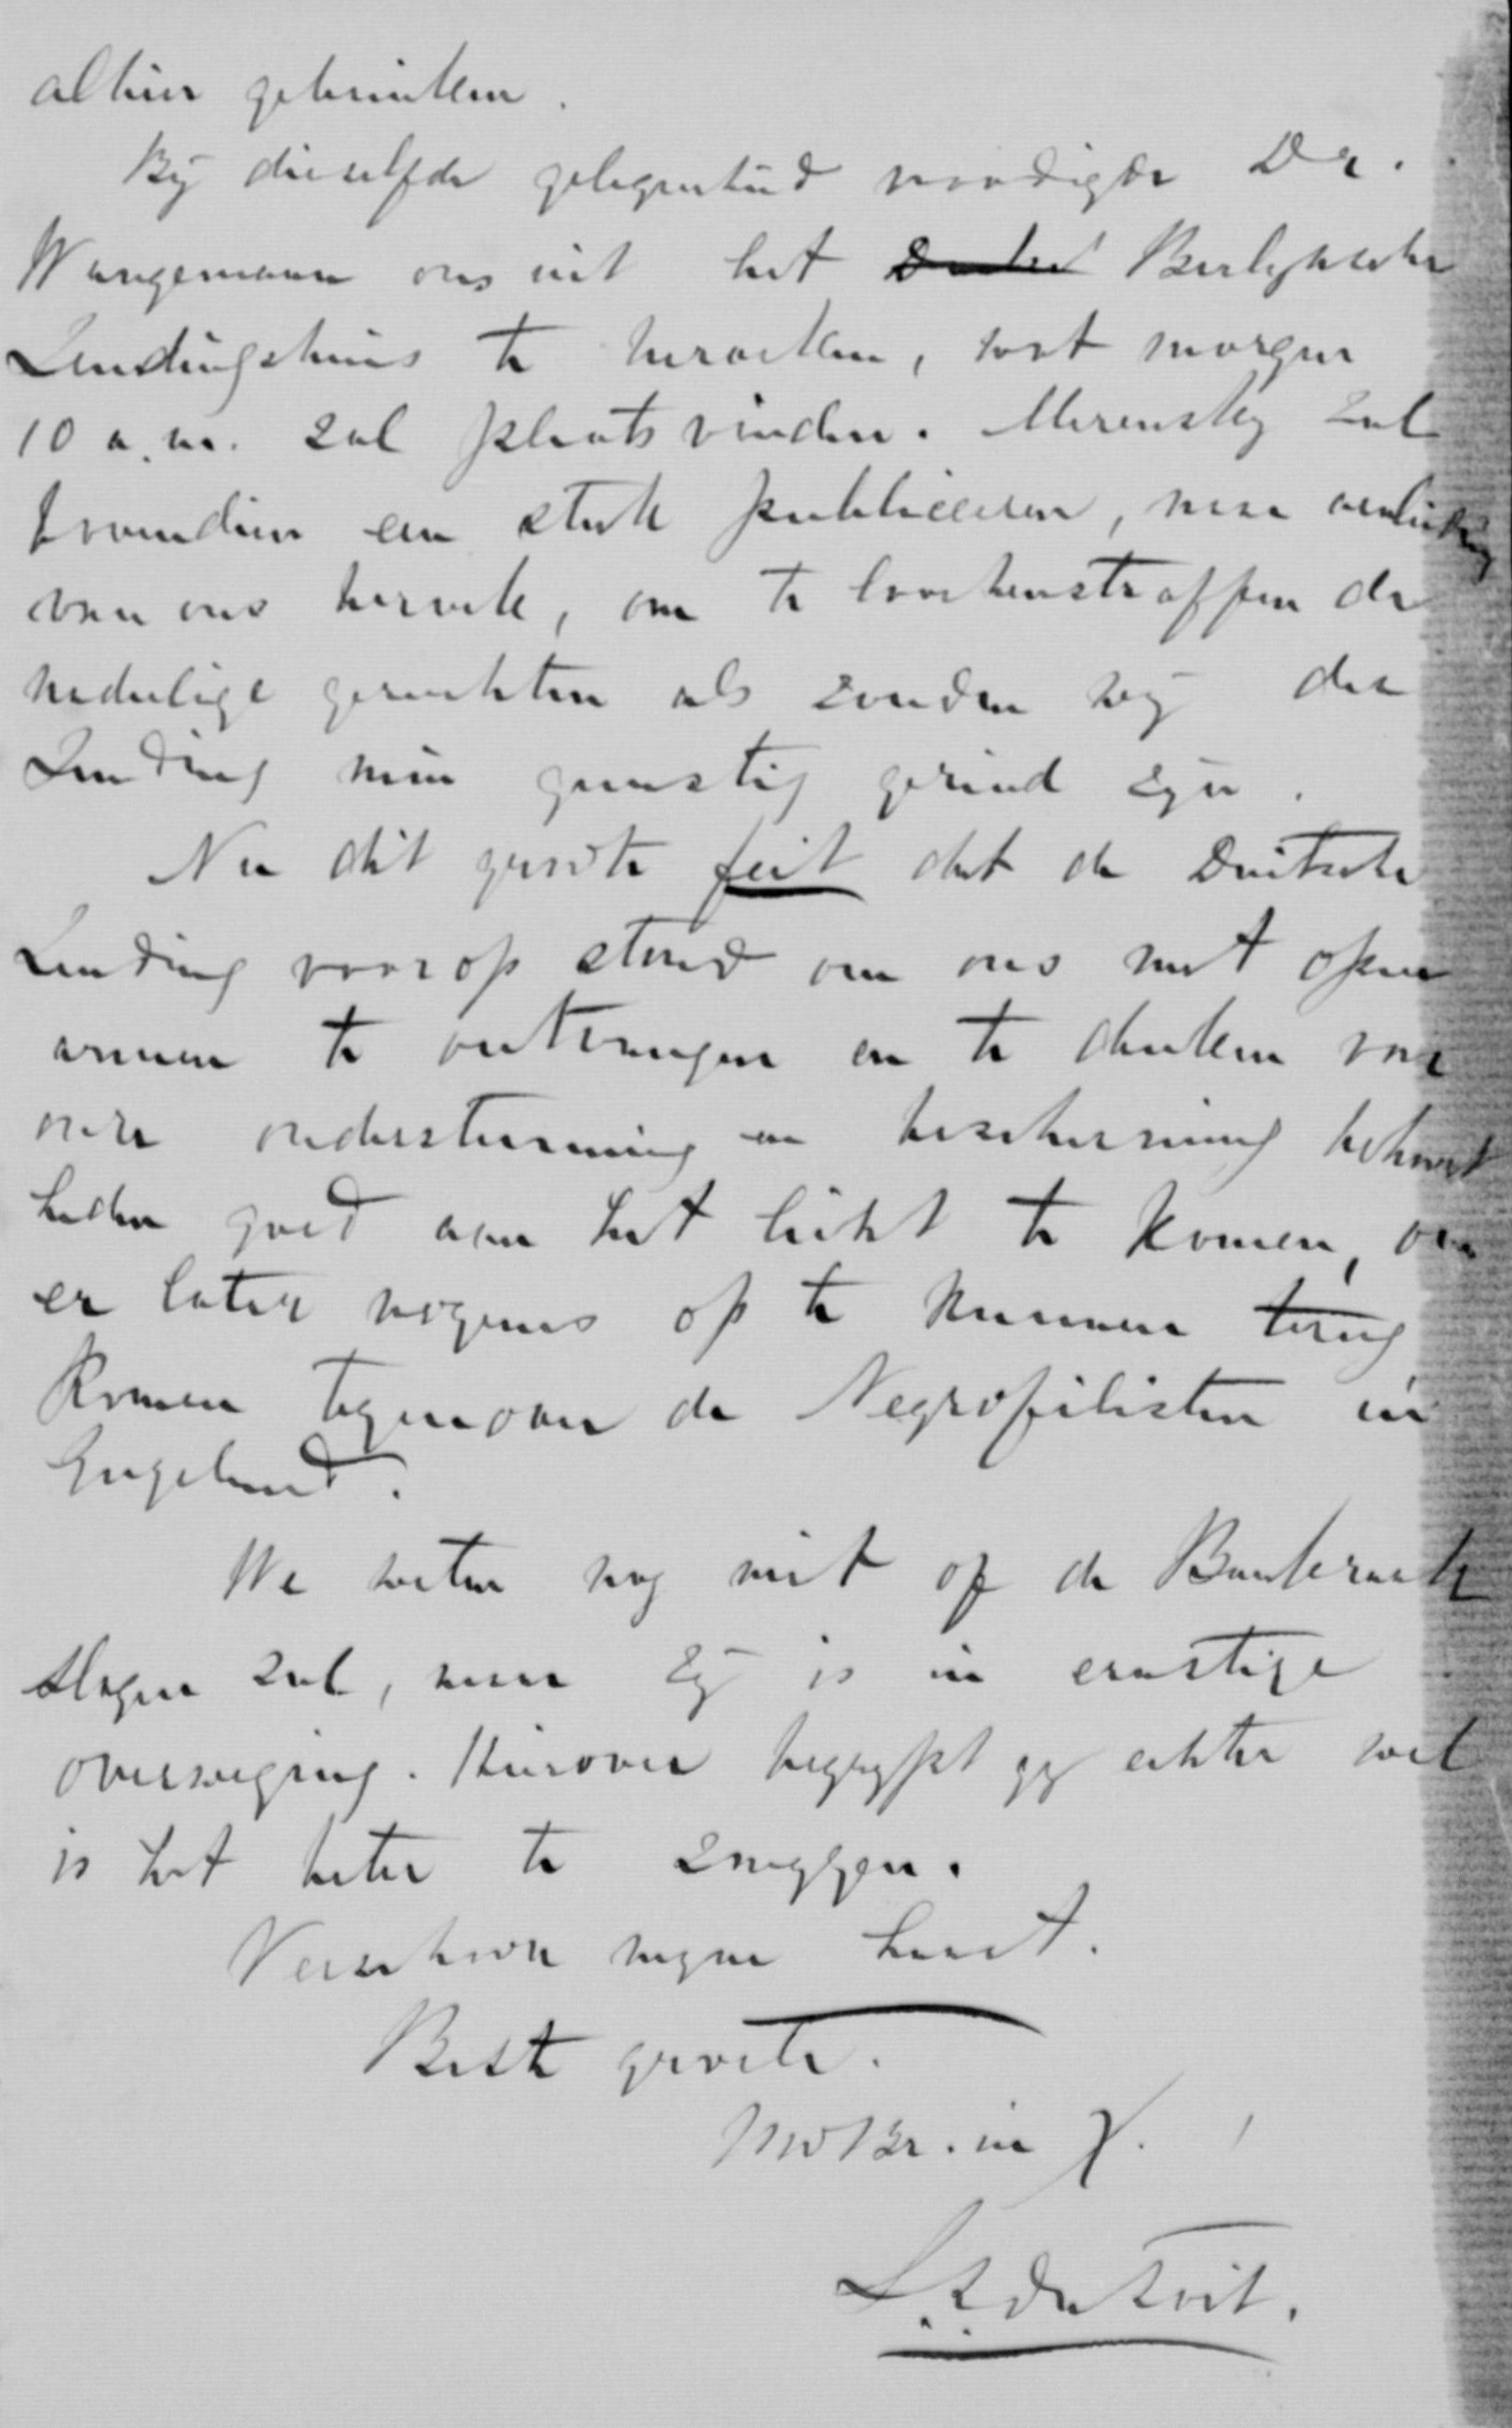 alhier gebruiken.
By dieselfde gelegenheid noodigde Dr.
Wangemann ons uit het Berlynsche
Zendingshuis te bezoeken, wat morgen
10 a.m. zal plaats vinden. Merensky zal
bovendien een stuk publiceeren, naar aanleiding
van ons bezoek, om te loochenstraffen de
nadeelige geruchten als zouden wy der
Zending min gunstig gezind zyn.
Nu dit groote feit dat de Duitsche
Zending voorop stond om ons met open
armen te ontvangen en te danken voor
onze ondersteuning en bescherming behoort
heden goed aan het licht te komen, om
er later nogeens op te kunnen terug
komen tegenover de Negrofilisten in
Engeland.
We weten nog niet of de Bankzaak
slagen zal, maar zy is in ernstige
overweging. Hierover begrypt gy echter wel
is het beter te zwygen.
Verschoon myne haast.
Beste groete.
Uw Br. in X.
S. J. du Toit.